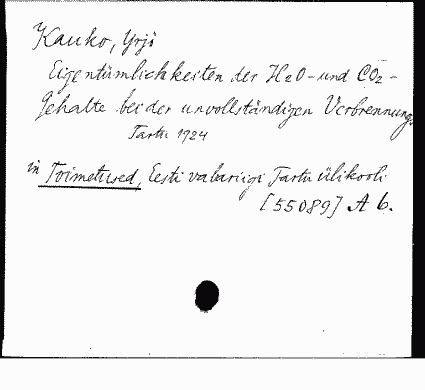 Kauko, Yrjö
Eigentümlichkeiten der H2O- und CO2-
Gehalte bei der unvollständigen Verbrennung.
Tartu 1924
in Toimetused, Eesti vabariigi Tartu ülikooli
[55089] A 6.